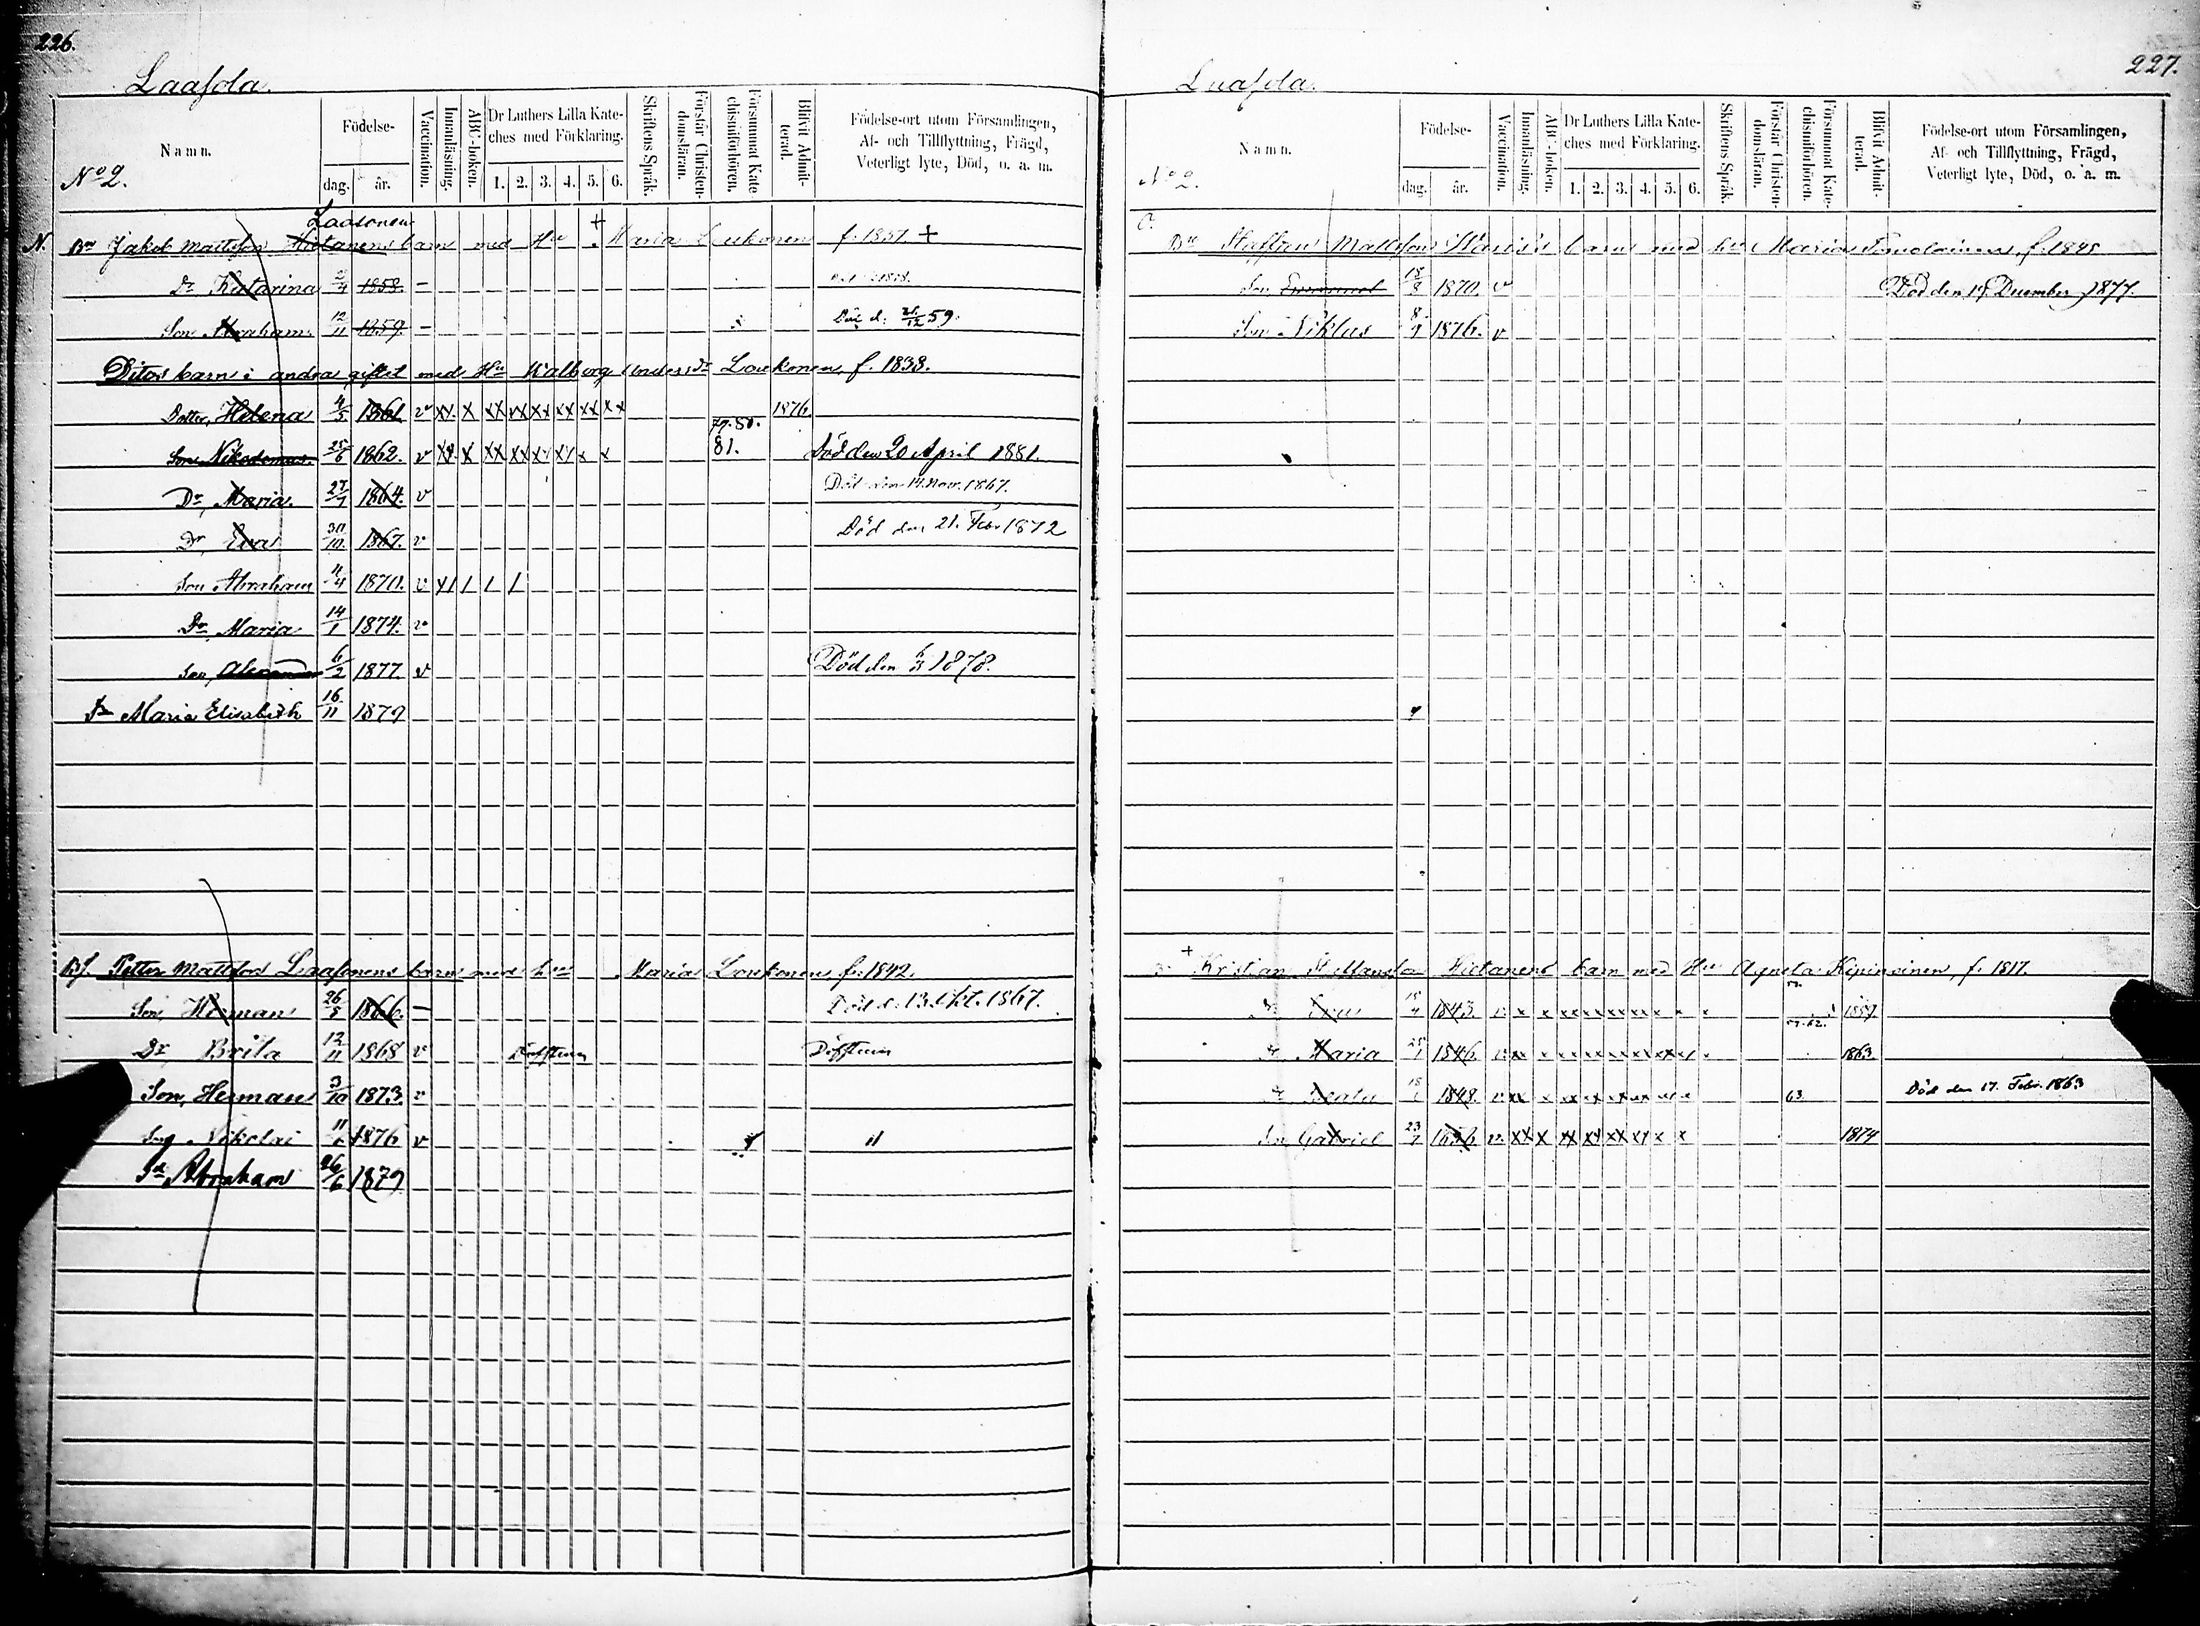 226.
Laasola.
No 2.
Namn.
Födelse-
dag. år.
Vaccination.
Innanläsning.
ABC-boken.
Dr Luthers Lilla Kate-
ches med Förklaring.
1. 2. 3. 4. 5. 6.
Skriftens Språk.
Förstår Christen-
domsläran.
Försummat Kate-
chismiförhören.
Blifvit Admit-
terad.
Födelse-ort utom Församlingen,
Af- och Tillflyttning, Frägd,
Veterligt lyte, Död, o. a. m.
Laasonen
N. Bn Jakob Mattsson Hietanens barn med Hu + Maria Leukonen f. 1851. +
Dr Katarina 2/4 1858. –
Son Abraham 12/11 1859. – Död d. 21/12 59.
Ditos barn i andra giftet med Hu Walborg Andersdr Loukonen, f. 1838.
Dotter, Helena 4/5 1861 v xx x xx xx xx xx xx xx 1876
79. 80.
Son Nikodemus 25/6 1862. v xx x xx xx xx xx x x 81. Död den 20 April 1881.
Dr, Maria. 27/7 1864. v Död den 14. Nov. 1867.
Dr, Eva 30/10. 1867. v Död den 21. Febr. 1872
Son Abraham 4/4 1870. v x/ / / /
Dr, Maria 14/1 1874. v
Son, Alexander 6/2 1877. v Död den 6/3 1878.
Dr Maria Elisabeth 16/11 1879
Bf. Petter Mattsson Laasonens barn med hu Maria Loukonen f. 1842.
Son, Herman 26/5 1866. – Död d. 13. Okt. 1867.
Dr Brita 12/11 1868 v Döfstum Döfstum
Son, Herman 3/10 1873. v
Son Nikolai 11/6 1876 v "
Sn Abraham 26/6 1879
227.
Laasola.
No 2.
Namn.
Födelse-
dag. år.
Vaccination.
Innanläsning.
ABC-boken.
Dr Luthers Lilla Kate-
ches med Förklaring.
1. 2. 3. 4. 5. 6.
Skriftens Språk.
Förstår Christen-
domsläran.
Försummat Kate-
chismiförhören.
Blifvit Admit-
terad.
Födelse-ort utom Församlingen,
Af- och Tillflyttning, Frägd,
Veterligt lyte, Död, o. a. m.
Bn Staffan Mattsson barn med hu Maria f. 1845
Son 18/8 1870. v Död den 19 December 1877.
Son Niklus 8/9 1876. v
+ Kristian Hietanens barn med Hu Agneta Kipinoinen, f. 1817.
Dr Eva 18/4 1843. v x x xx xx xx xx x x 1859
57. 62.
Dr Maria 25/1 1846 v xx x xx xx xx xx xx x 1863
Dr Beata 18/1 1848. v xx x xx xx xx xx xx x 63. Död den 17. Febr. 1863
Son Gabriel 23/7 1856 v. xx x xx xx xx xx x x 1874